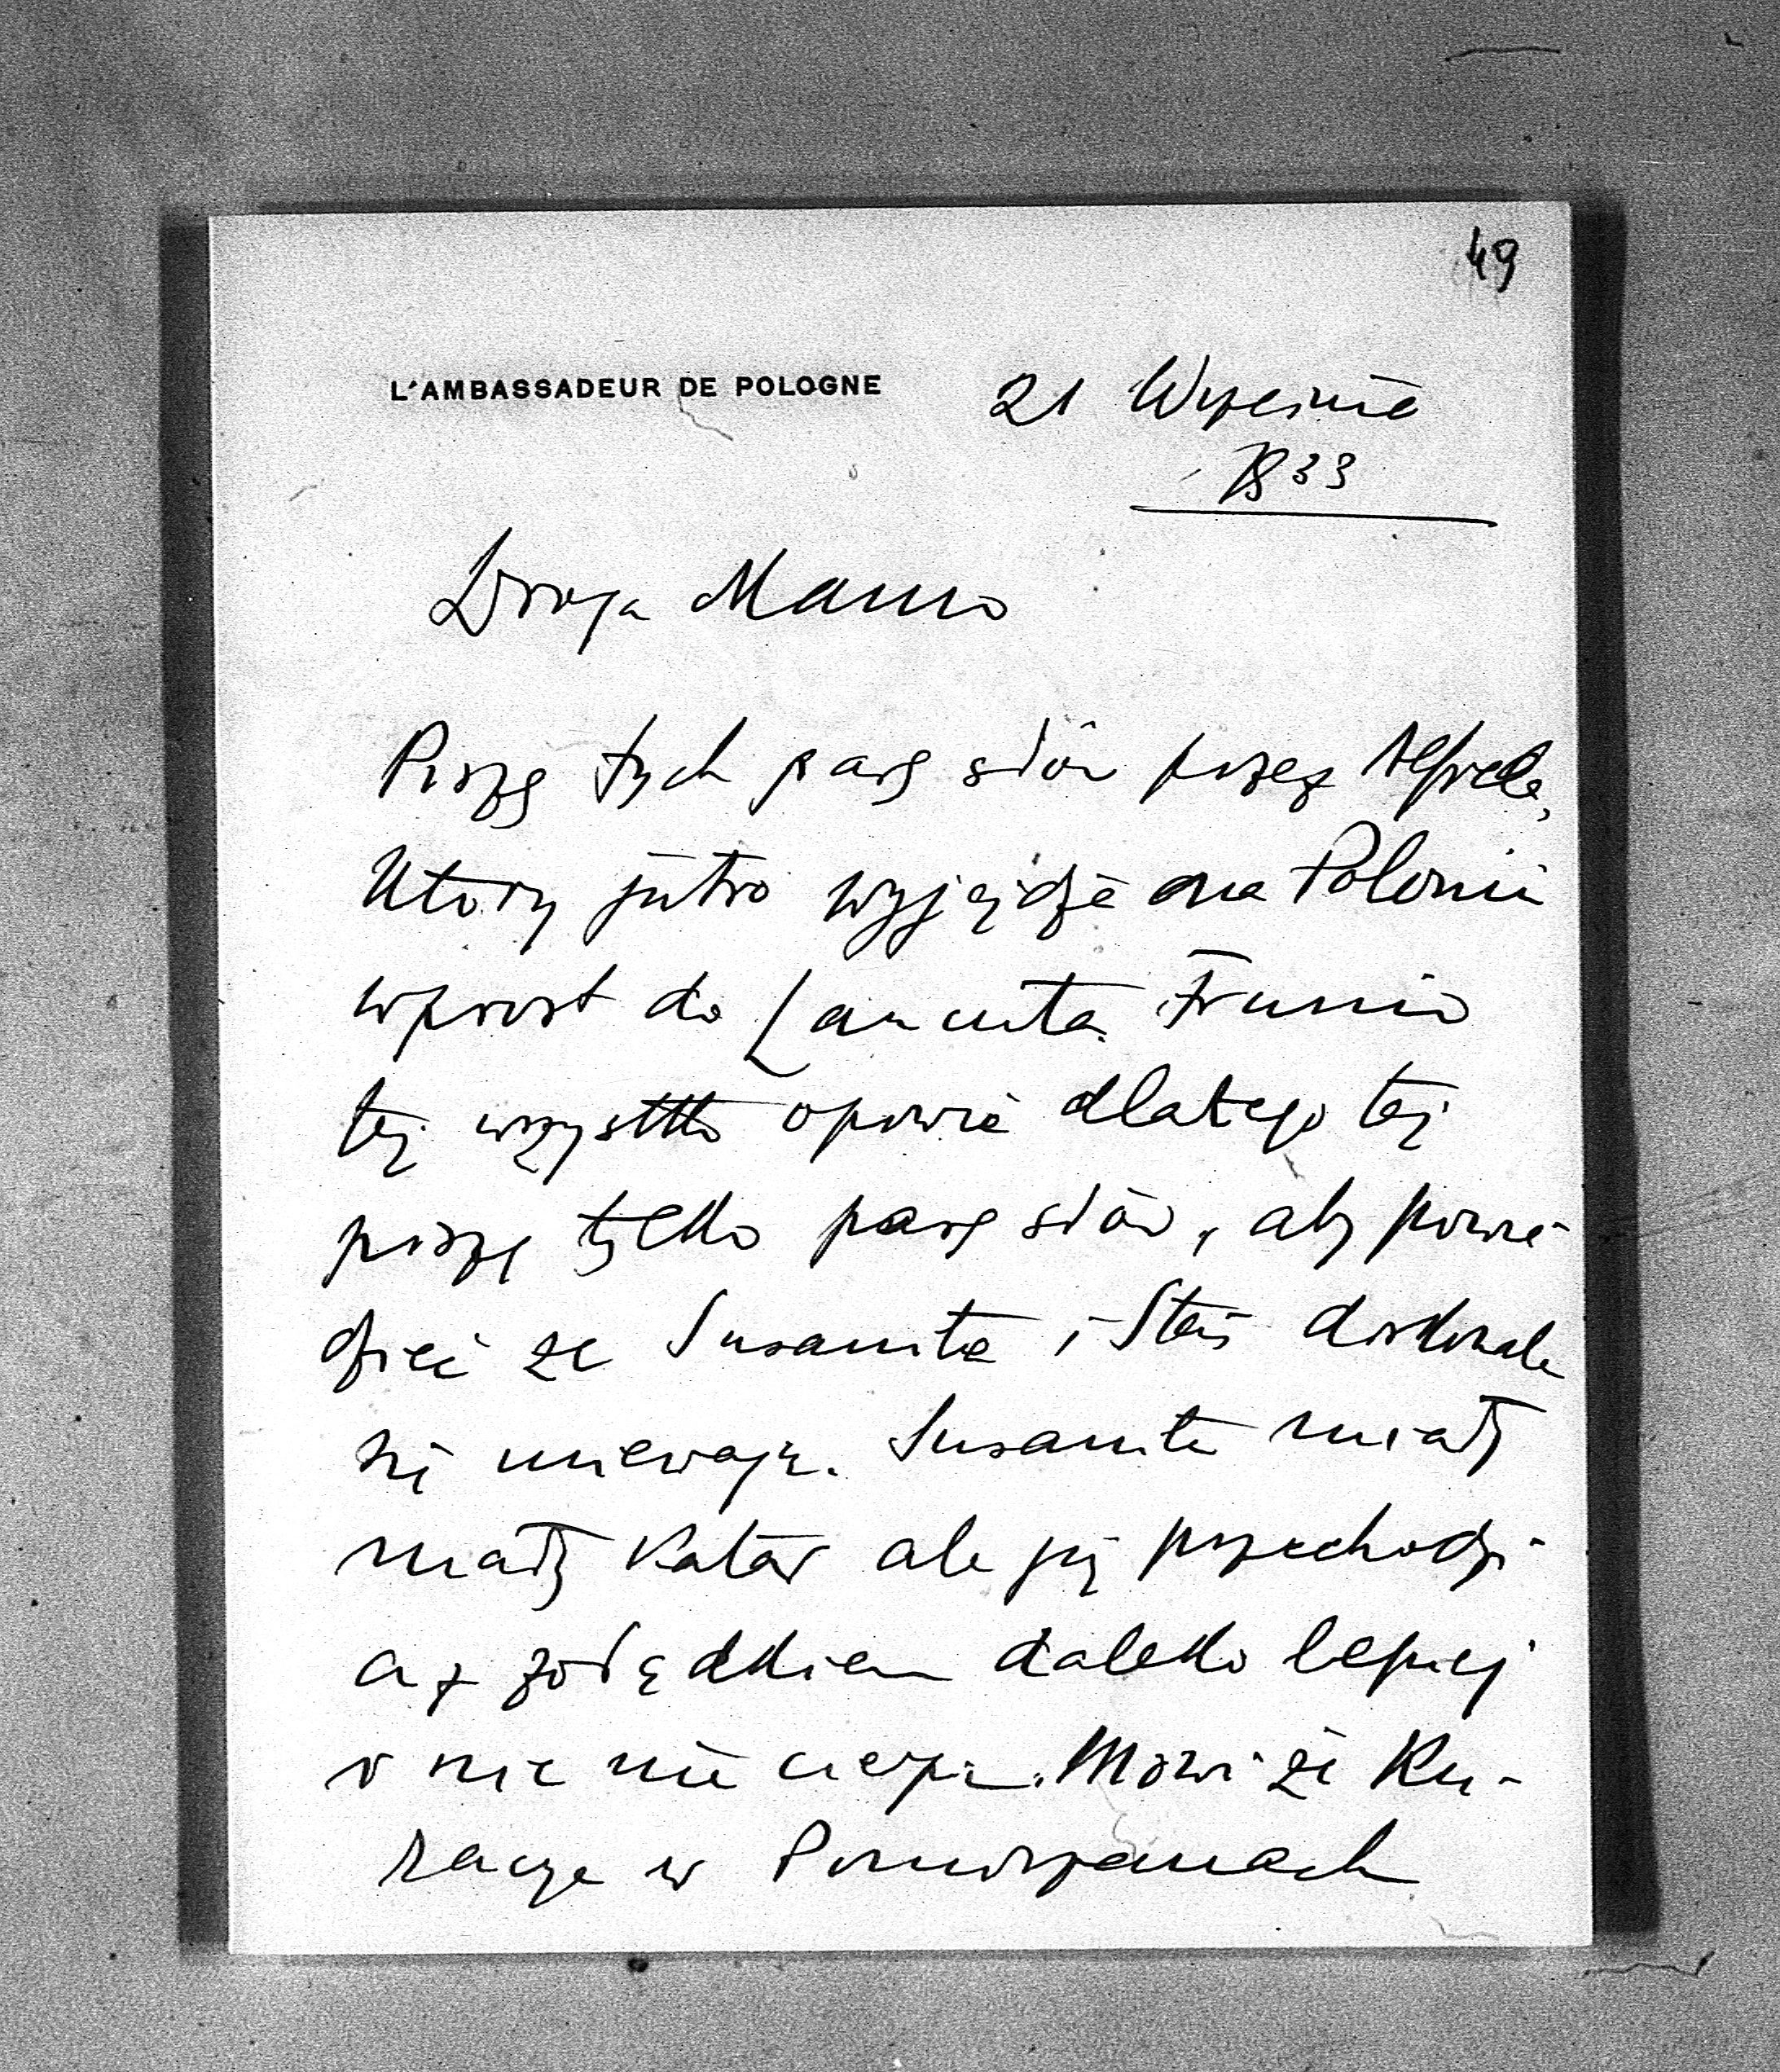 49
L'AMBASSADEUR DE POLOGNE
21 Września
1933
Droga Mamo
Piszę tych parę słów przez Alfreda,
Ktory jutro wyjężdża na Polonii
wprost do Łancuta.
też wszystko opowie dlatego też
piszę tylko parę słów, aby powie-
dzieć ze Susanita i Staś doskonale
się miewają. Susanita miała
mały Katar ale jej przechodzi
a z żołędkiem daleko lepiej
i nic nie cierpi. Mowi że Ku-
racya w Pomorzanach